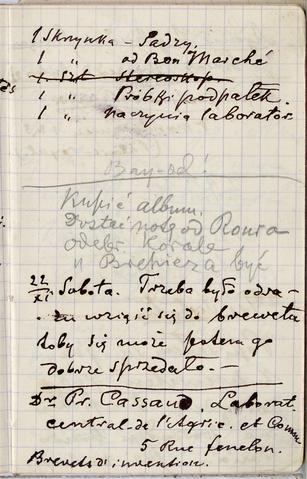 1 Skrzynka – Sadzy.
1 „ od Bon Marché
1. Szt Stereoskop.
1 „ Próbki podpałek.
1 „ naczynia laborator.
Kupić album.
Dostać notę od
odebr. Korale
u być
22/XI. Sobota. Trzeba było
wziąść się do breweta
toby się może potem go
dobrze sprzedało. –
Dr Pr. Laborat.
central de l'Agric. et Comm
5 Rue fenelon.
Brevets d'invention.